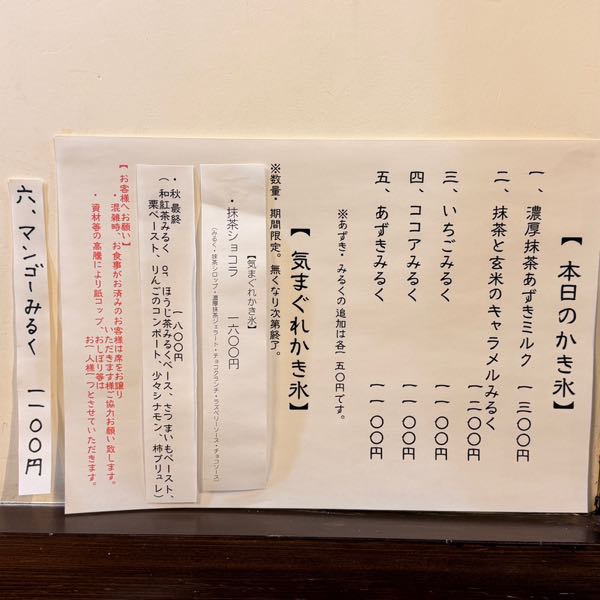 【本日のかき氷】
一、濃厚抹茶あずきミルク 一三〇〇円
二、抹茶と玄米のキャラメルみるく 一二〇〇円
三、いちごみるく 一一〇〇円
四、ココアみるく 一一〇〇円
五、あずきみるく 一一〇〇円
※あずき・みるくの追加は各一五〇円です。
【気まぐれかき氷】
※数量・期間限定。無くなり次第終了。
【気まぐれかき氷】
・抹茶ショコラ 一六〇〇円
(みるく・抹茶シロップ・濃厚抹茶ジェラート・チョコクランチ・ラズベリーソース・チョコソース)
・秋 最終 一八〇〇円
(和紅茶みるく or ほうじ茶みるくベース、さつまいもペースト、
栗ペースト、りんごのコンポート、少々シナモン、柿ブリュレ)
【お客様へお願い】
・混雑時、お食事がお済みのお客様は席をお譲り
いただきます様ご協力お願い致します。
・資材等の高騰により紙コップ、おしぼり等は
お一人様一つとさせていただきます。
六、マンゴーみるく 一一〇〇円